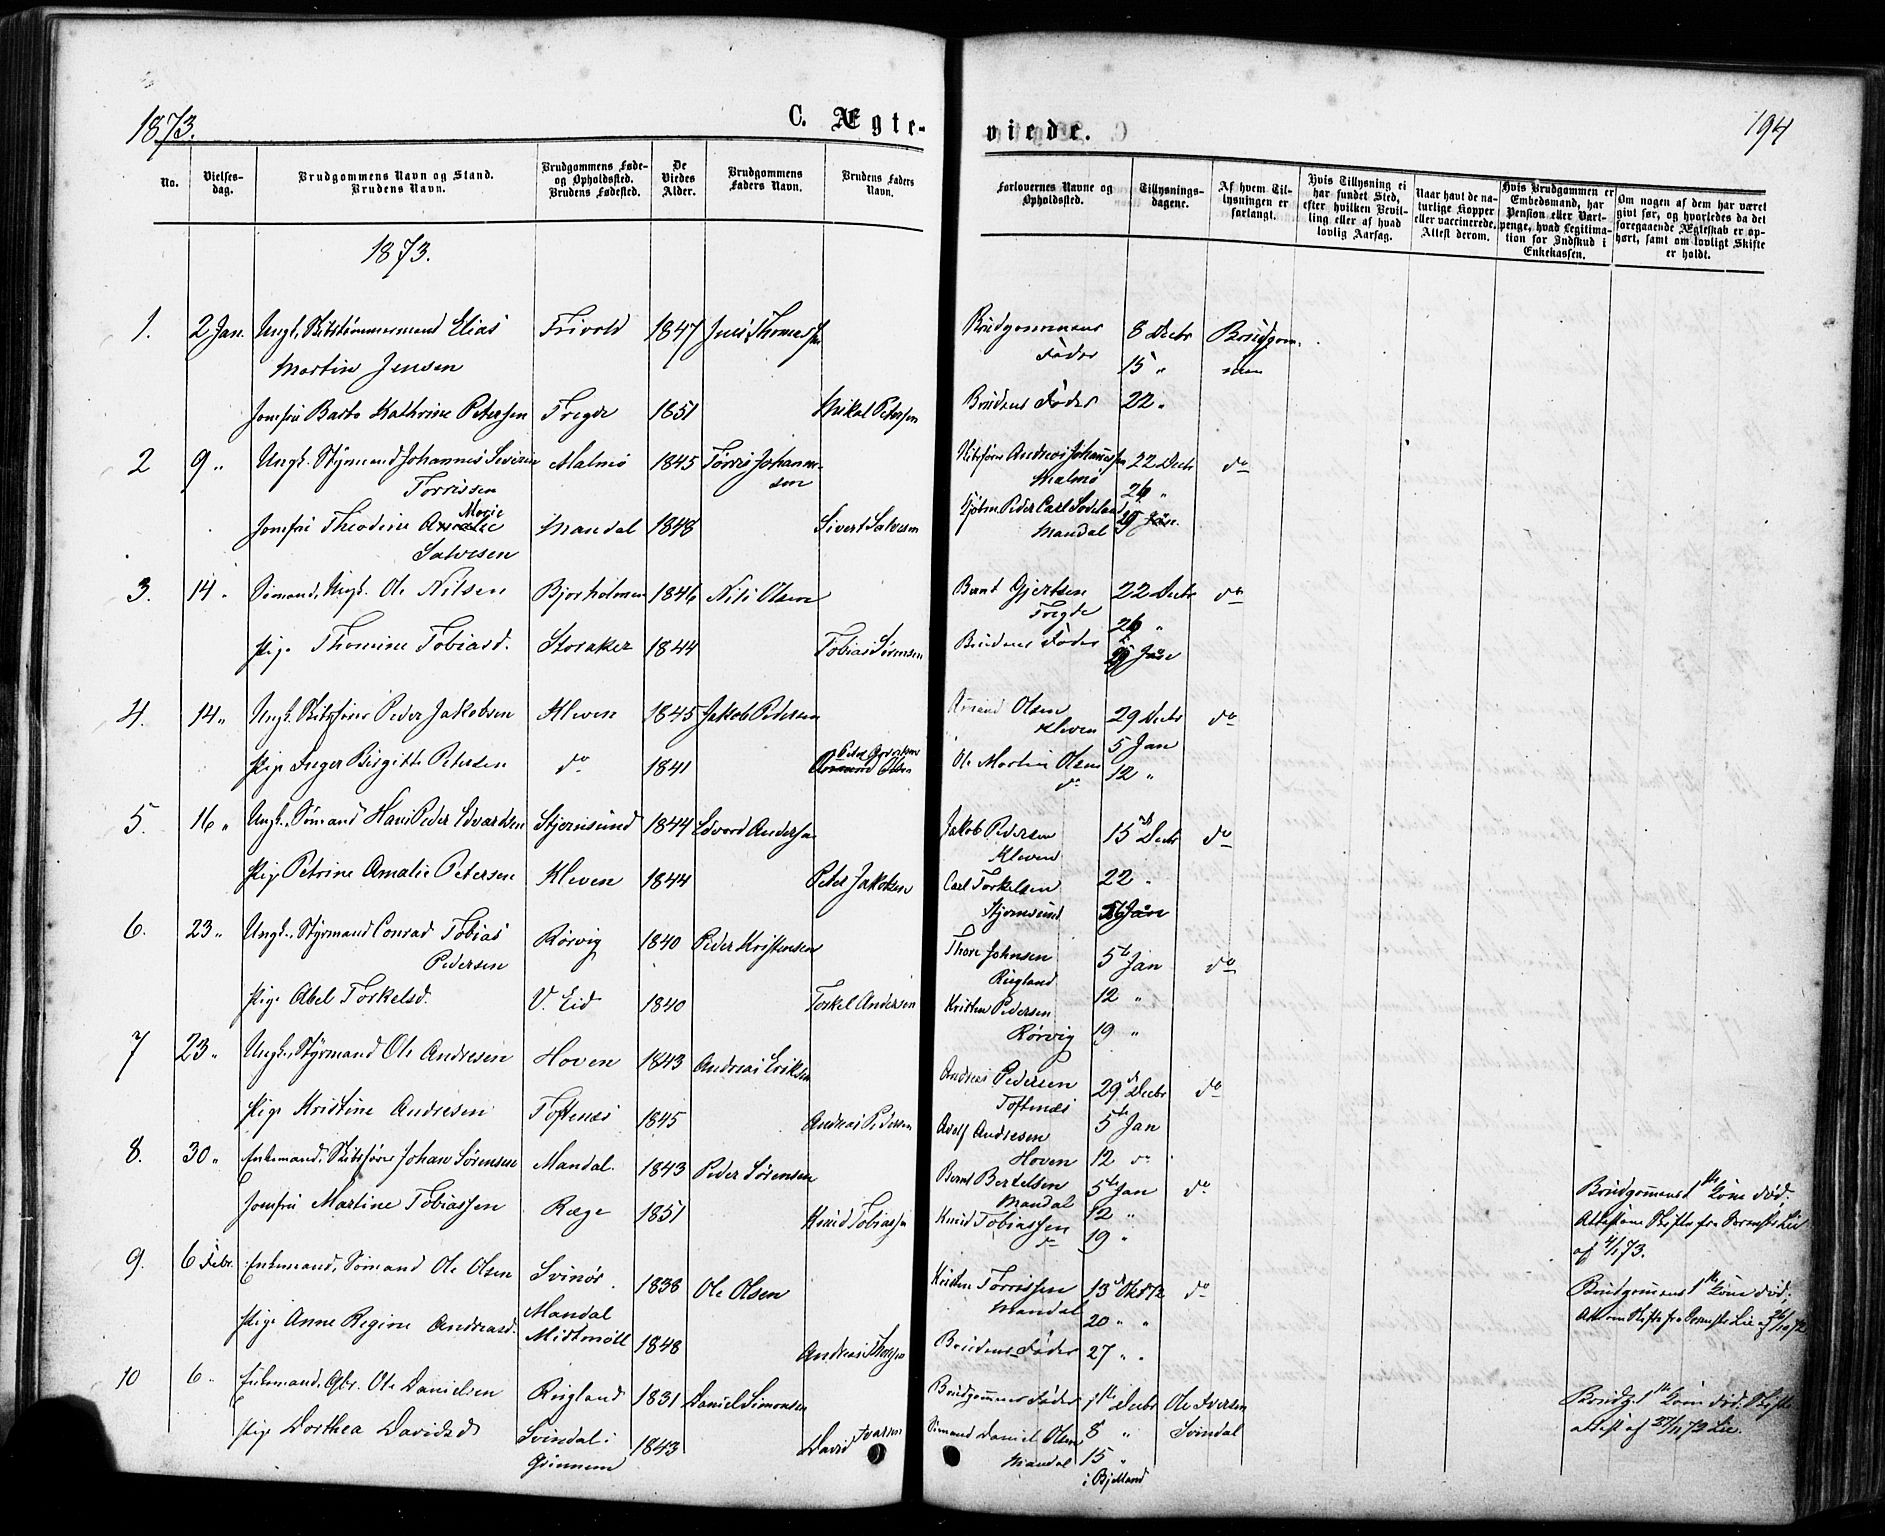 1873.
C. Ægte-
viede.
194
No.
Vielses-
dag.
Brudgommens Navn og Stand.
Brudens Navn.
Brudgommens Føde-
og Opholdssted.
Brudens Fødested.
De
Viedes
Alder.
Brudgommens
Faders Navn.
Brudens Faders
Navn.
Forlovernes Navne og
Opholdssted.
Tillysnings-
dagene.
Af hvem Til-
lysningen er
forlangt.
Hvis Tillysning ei
har fundet Sted,
efter hvilken Bevil-
ling eller af hvad
lovlig Aarsag.
Naar havt de na-
turlige Kopper
eller vaccinerede.
Attest derom.
Hvis Brudgommen er
Embedsmand, har
Pension eller Vart-
penge, hvad Legitima-
tion for Indskud i
Enkekassen.
Om nogen af dem har været
givt før, og hvorledes da det
foregaaende Ægteskab er op-
hørt, samt om lovligt Skifte
er holdt.
1873.
1. 2 Jan. Ungk. Skibstømmermand Elias Frivold 1847 Jens Thomassen Brudgommens 8 Decbr Brudgom-
Martin Jensen Fader 15 " men
Jomfru Barbo Kathrine Petersen Fregde 1851 Mikal Petersen Brudens Fader 22 "
2 9 " Ungk. Styrmand Johannes Severin Malmø 1845 Torris Johann- Skibsfører Andreas Johannessen 22 Decbr do
Torrissen sen Malmø 26 "
Jomfru Theodine Marie Mandal 1848 Sivert Salvesen Peder Carl
Salvesen Mandal
3. 14 " Sømand, Ungk. Ole Nilsen Bjorholmen 1846 Nils Olsen Bernt Gjertsen 22 Decbr do
Fregde 26 "
Pige Thomine Tobiasd. Storaker 1844 Tobias Sørensen Brudens Fader
4. 14 " Ungk. Skibsfører Peder Jakobsen Kleven 1845 Jakob Pedersen Olsen 29 Decbr do
Kleven 5 Jan
Pige Inger Birgitte Petersen do 1841 Peter Ole Martin Olsen 12 "
do
5. 16 " Ungk., Sømand Hans Peder Edvardsen Stjernsund 1844 Edvard Andersen Jakob Pedersen 15de Decbr do
Kleven
Pige Petrine Amalie Petersen Kleven 1844 Peter Jakobsen Carl Torkelsen 22 "
Stjernsund
6. 23 " Ungk., Styrmand Conrad Tobias Rørvig 1840 Peder Kristensen Thore Johnsen 5te Jan do
Pedersen Risgland
Pige Abel Torkelsd. V. Eid 1840 Torkel Andersen Kristen Pedersen 12 "
Rørvig 19 "
7 23 " Ungk., Styrmand Ole Andresen Hoven 1843 Andreas Eriksen Andreas Pedersen 29de Decbr do
Toftenæs
Pige Kristine Andresen Toftenæs 1845 Andreas Pedersen Adolf Andresen 5te Jan
Hoven 12 do
8. 30 " Enkemand, Skibsfører Johan Sørensen Mandal. 1843 Peder Sørensen Bernt Bertelsen 5te Jan do Brudgommens 1ste Kone død.
Mandal
Jomfru Martine Tobiassen Ræge 1851 Knud Tobiassen Knud Tobiassen 12 " Attest om Skifte fra Lie
do 19 " af 4/1 73.
9. 6 Febr. Enkemand, Sømand Ole Olsen Svinør. 1838 Ole Olsen Kristen Torrissen 13de Okt 72 do Brudgommens 1ste Kone død,
Mandal 20 " "
Pige Anne Regine Andreasd. Mandal
Midtmøll 1848 Andreas Brudens Fader 27 " "
10 6 " Enkemand, Gbr. Ole Danielsen Risgland 1831 Daniel Simonsen Brudgommens Fader 1ste Decbr Ole Iversen Brudg. 1ste Kone død. Skifte
Pige Dorthea Davidsd. Svindal i 1843 David Ivarsen Sømand Daniel Olsen 8 " Svindal attest af 27/11 72 Lie.
Grinnem Mandal 15 "
i Bjelland